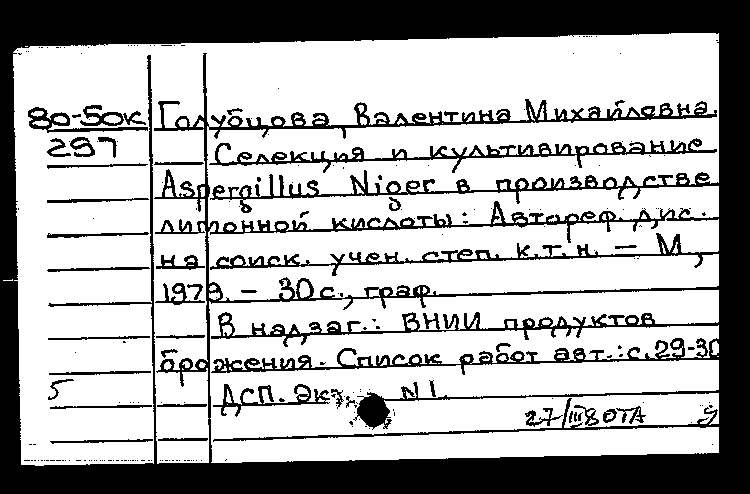 80-50к Голубцова, Валентина Михайловна.
297 Селекция и культивирование
Aspergillus Niger в производстве
лимонной кислоты: Автореф. дис.
на соиск. учен. степ. к.т.н. — М,
1979. — 30 с., граф.
В надзаг.: ВНИИ продуктов
брожения. Список работ авт.: с. 29-30
5 ДСП. Экз. N 1.
27/III 80 ТА